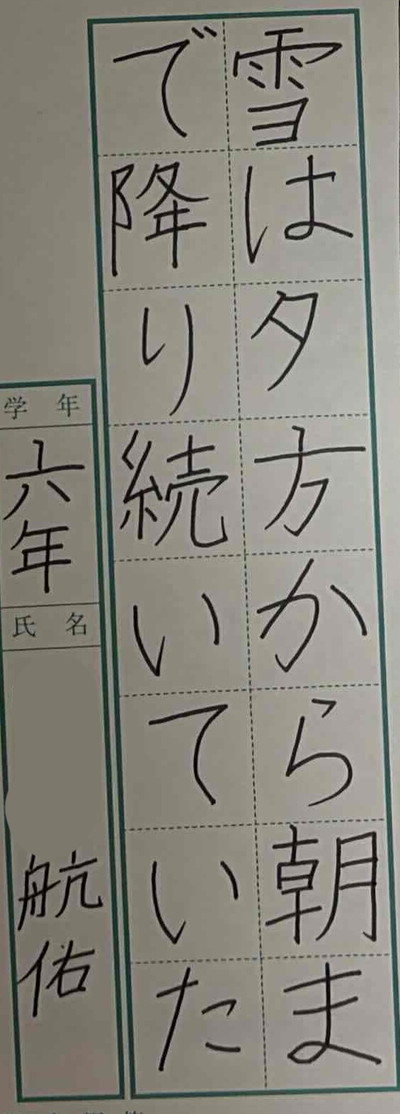 雪は夕方から朝ま
で降り続いていた
学年
六年
氏名
航佑